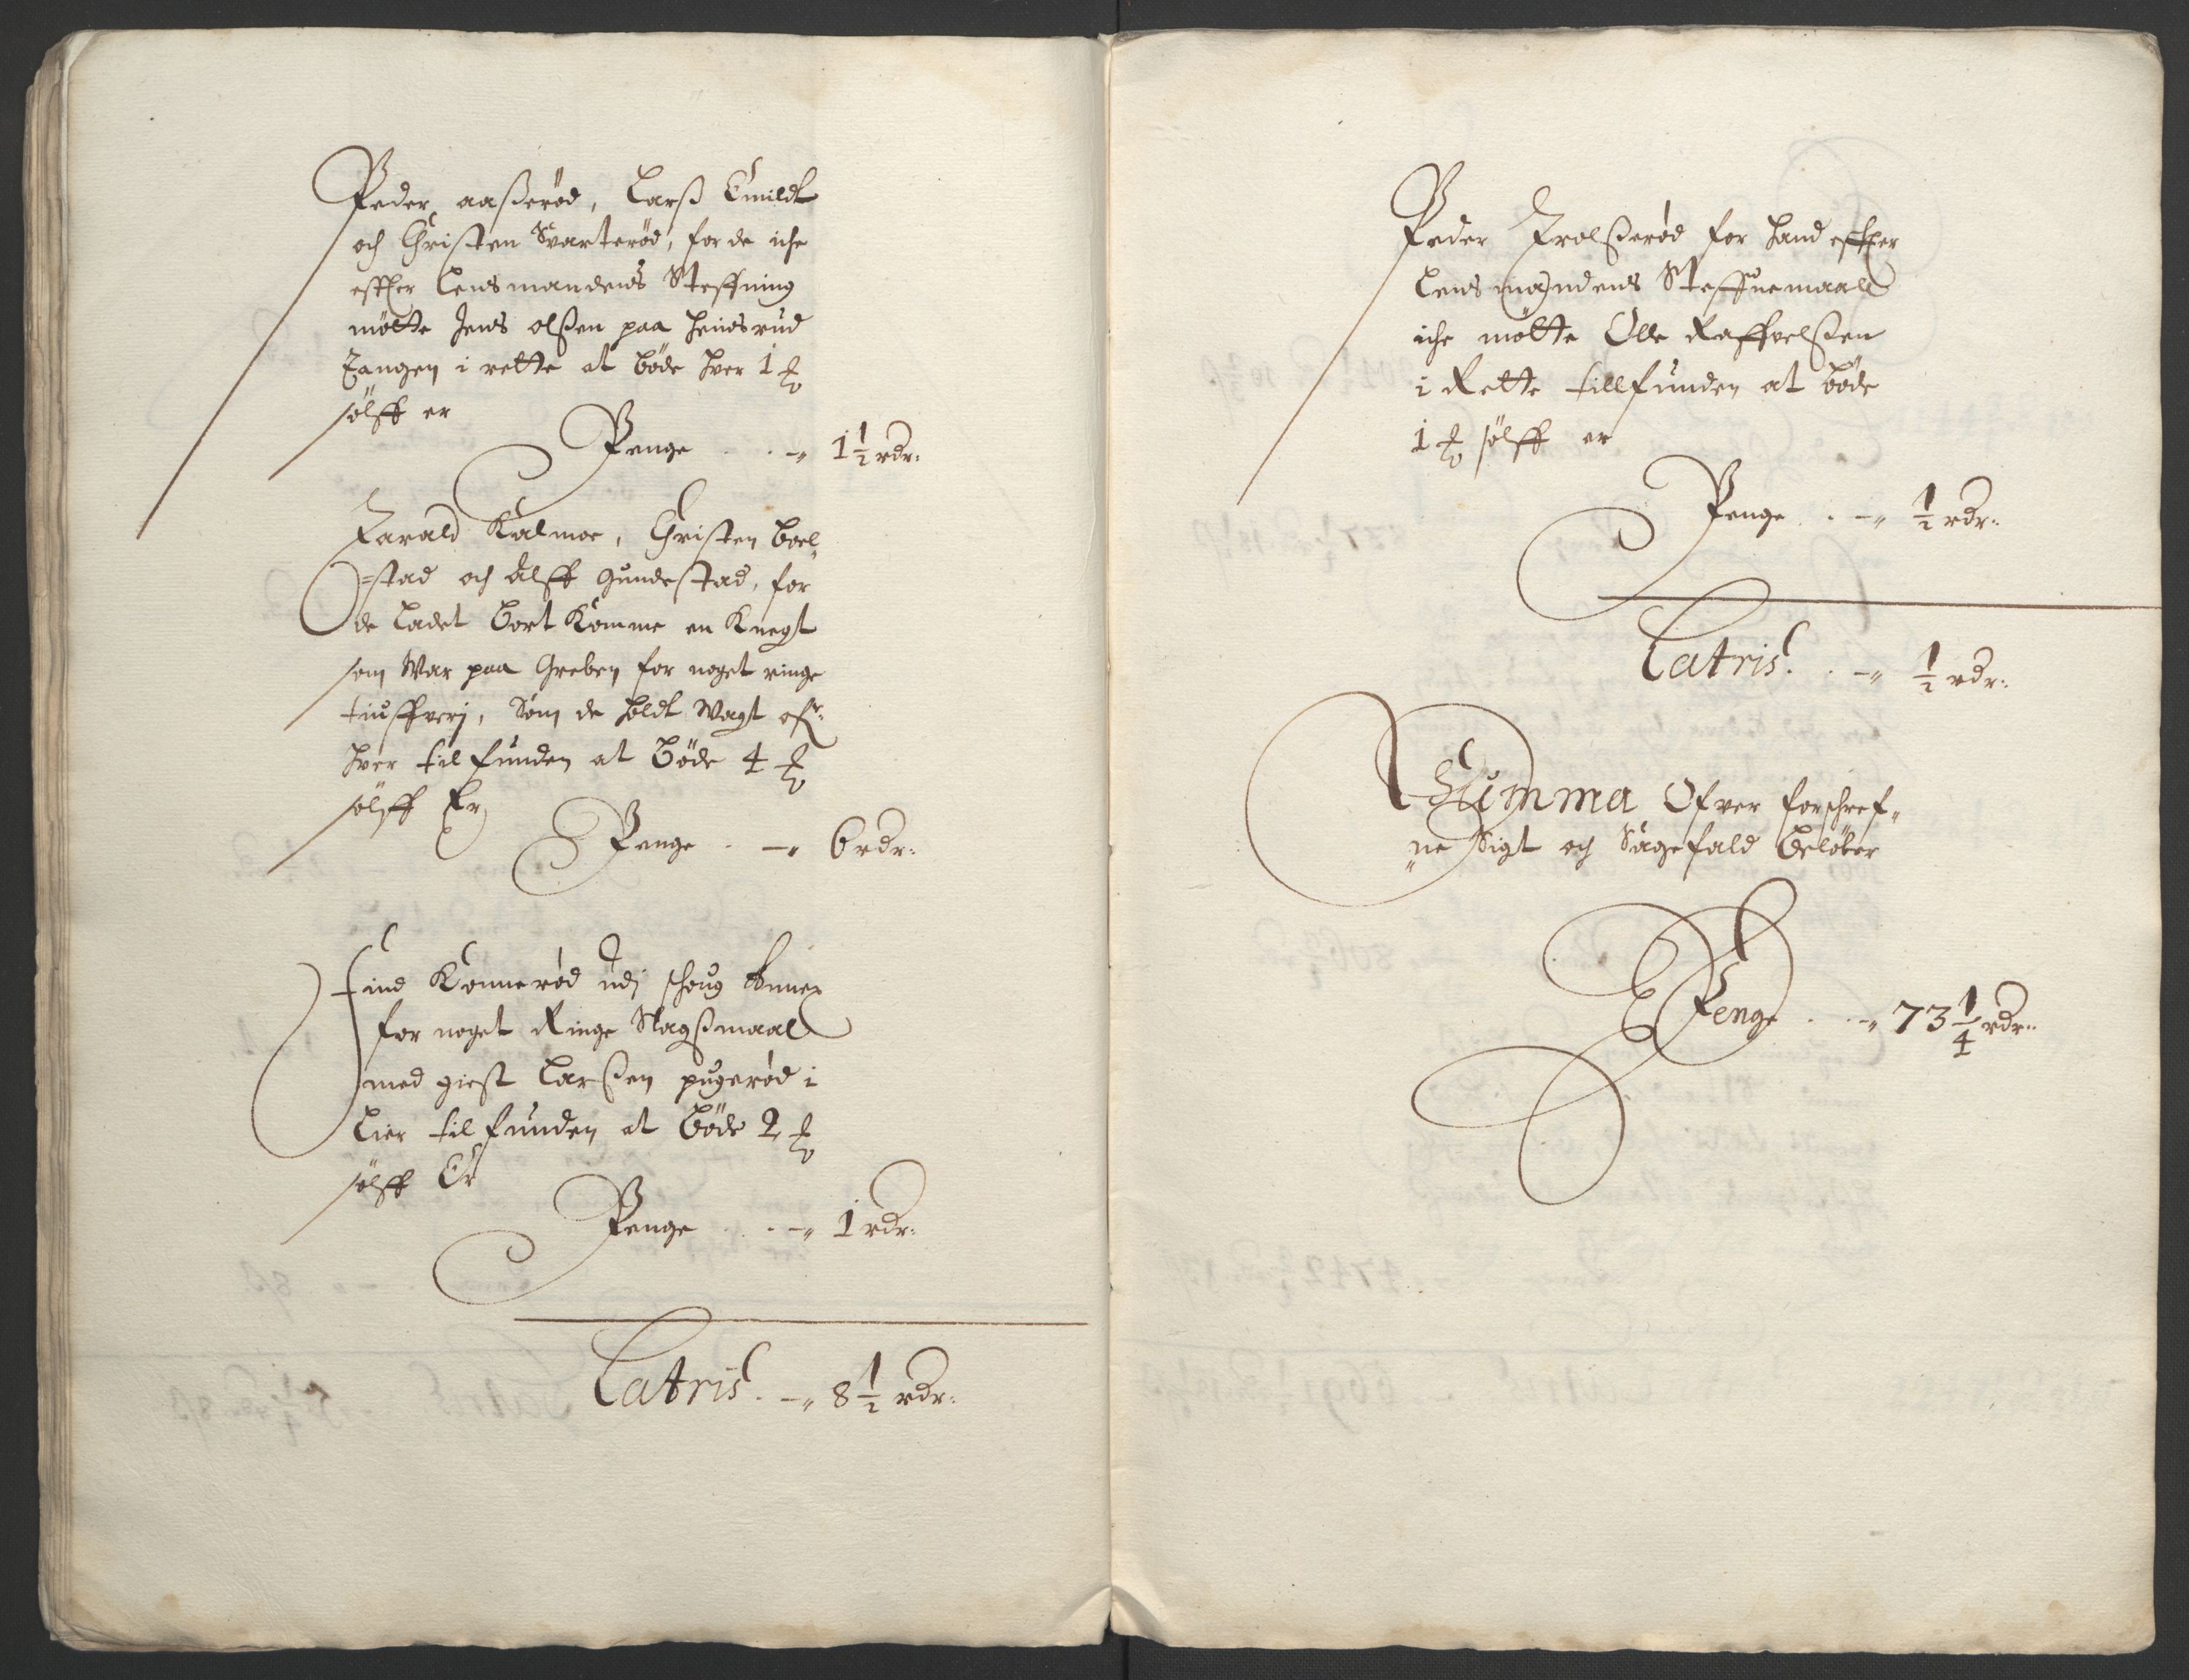 Peder aaßerød, Larß Emildt
och Christen Svarterød, for de iche
effter Lensmandens Steffning
mötte Jens olßen paa
Tangen i rette at böde hver 1 ℔
sölff er
Penge . . -„ 1 1/2 rdr:
Harald Kalmoe, Christen boel„
=stad och Alff Gundestad, for
de Ladet bort Komme en Knegt
som War paa Greben for noget ringe
tiufferj, Som de holdt Wagt ofr:
hver tilfunden at Böde 4 ℔
sölff Er
Penge . -„ 6 rdr:
find Konnerød udj schoug Annex
for noget Ringe Slagßmaal
med giest Larßen pugerød i
Lier tilfunden at Böde 2 ℔
sölff Er
Penge . . -„ 1 rdr:
Latris. -„ 8 1/2 rdr:
Peder Trolßerød for hand effter
Lensmandens Steffnemaal
iche mötte Olle Raffvelßen
i Rette tillfunden at böde
1 ℔ sölff er
Penge . -„ 1/2 rdr:
Latris. . -„ 1/2 rdr:
Summa Ofver forschref„
„ne Sigt och Sagefald Belöber
Penge . . -„ 73 1/4 rdr: